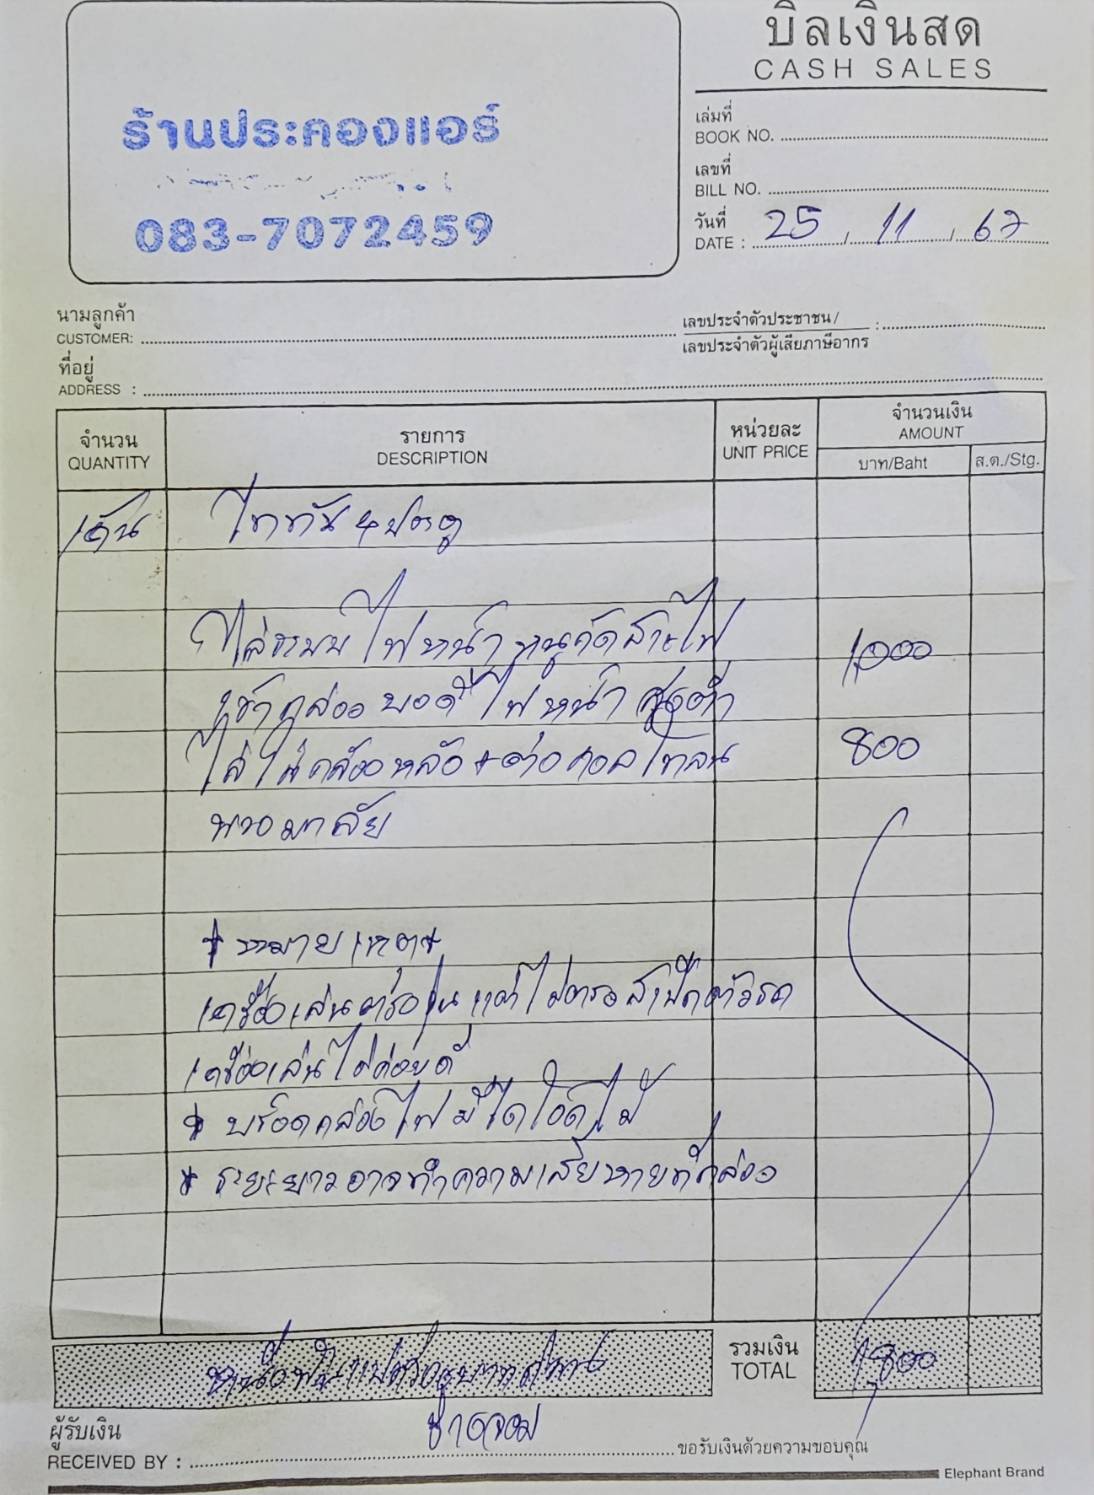 บิลเงินสด
CASH SALES
ร้านประคองแอร์
083-7072459
เล่มที่
BOOK NO.
เลขที่
BILL NO.
วันที่
DATE : 25 / 11 / 67
นามลูกค้า
CUSTOMER:
เลขประจำตัวประชาชน /
เลขประจำตัวผู้เสียภาษีอากร :
ที่อยู่
ADDRESS :
จำนวน รายการ หน่วยละ จำนวนเงิน
QUANTITY DESCRIPTION UNIT PRICE AMOUNT
บาท/Baht ส.ต./Stg.
ไททัน 4 ประตู
ไล่ระบบไฟหน้า หนูกัดสายไฟ 1,000
เข้ากล่อง บอดี้ ไฟหน้า สูงต่ำ
ไล่ไฟกล้องหลัง + ต่อคอลโทลน 800
พวงมาลัย
* หมายเหตุ *
เครื่องเล่นตรงรุ่น แต่ไม่ตรงสเป็คตัวรถ
เครื่องเล่นไม่ค่อยดี
* ปร๊อคกล่องไฟมีไดโอดไม้
* ระยะยาวอาจทำความเสียหายที่กล่อง
รวมเงิน
TOTAL 1,800
ผู้รับเงิน
RECEIVED BY : ช่างจอม
ขอรับเงินด้วยความขอบคุณ
Elephant Brand